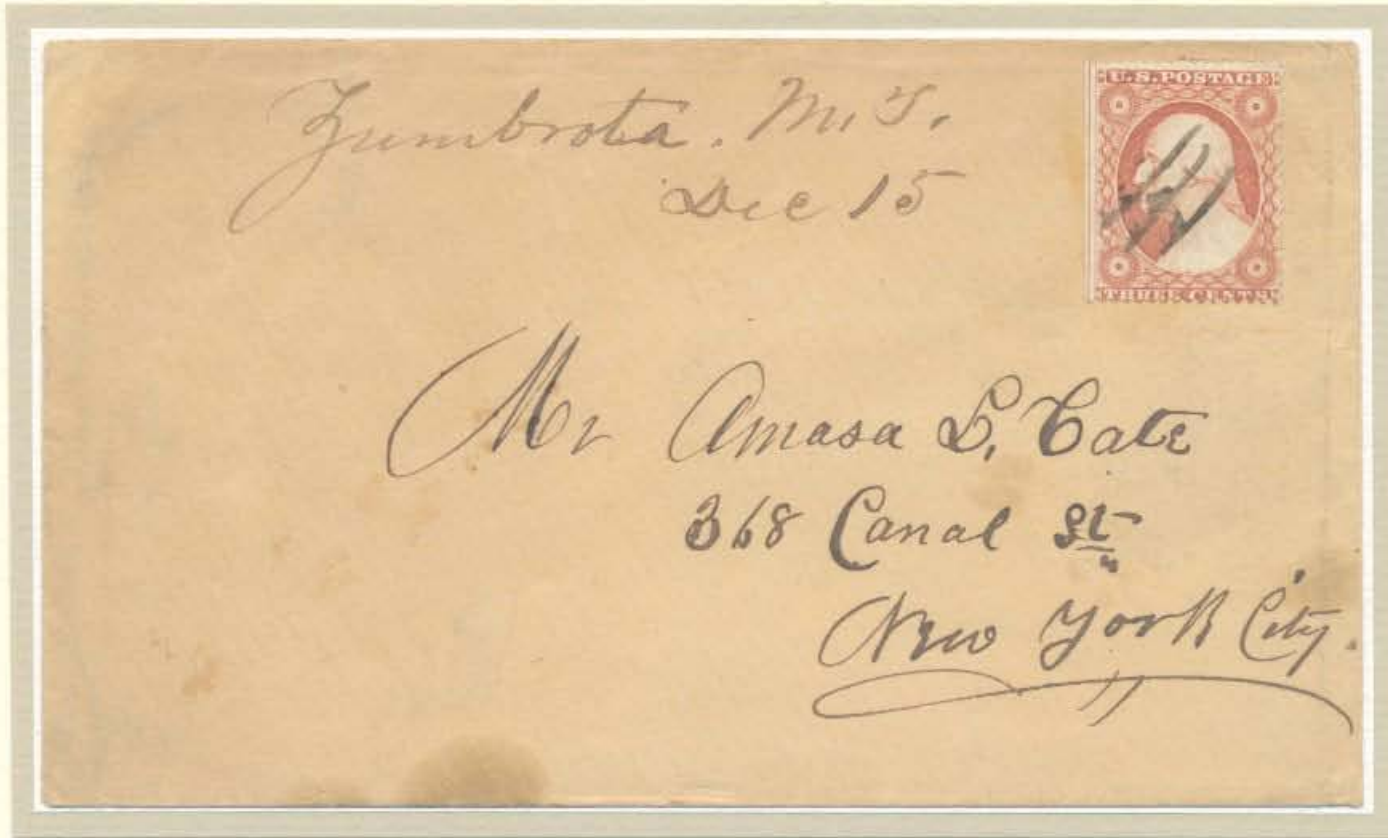 Zumbrota. M.T.
Dec 15
U.S. POSTAGE
THREE CENTS
Mr Amasa S. Cate
368 Canal St
New York City.